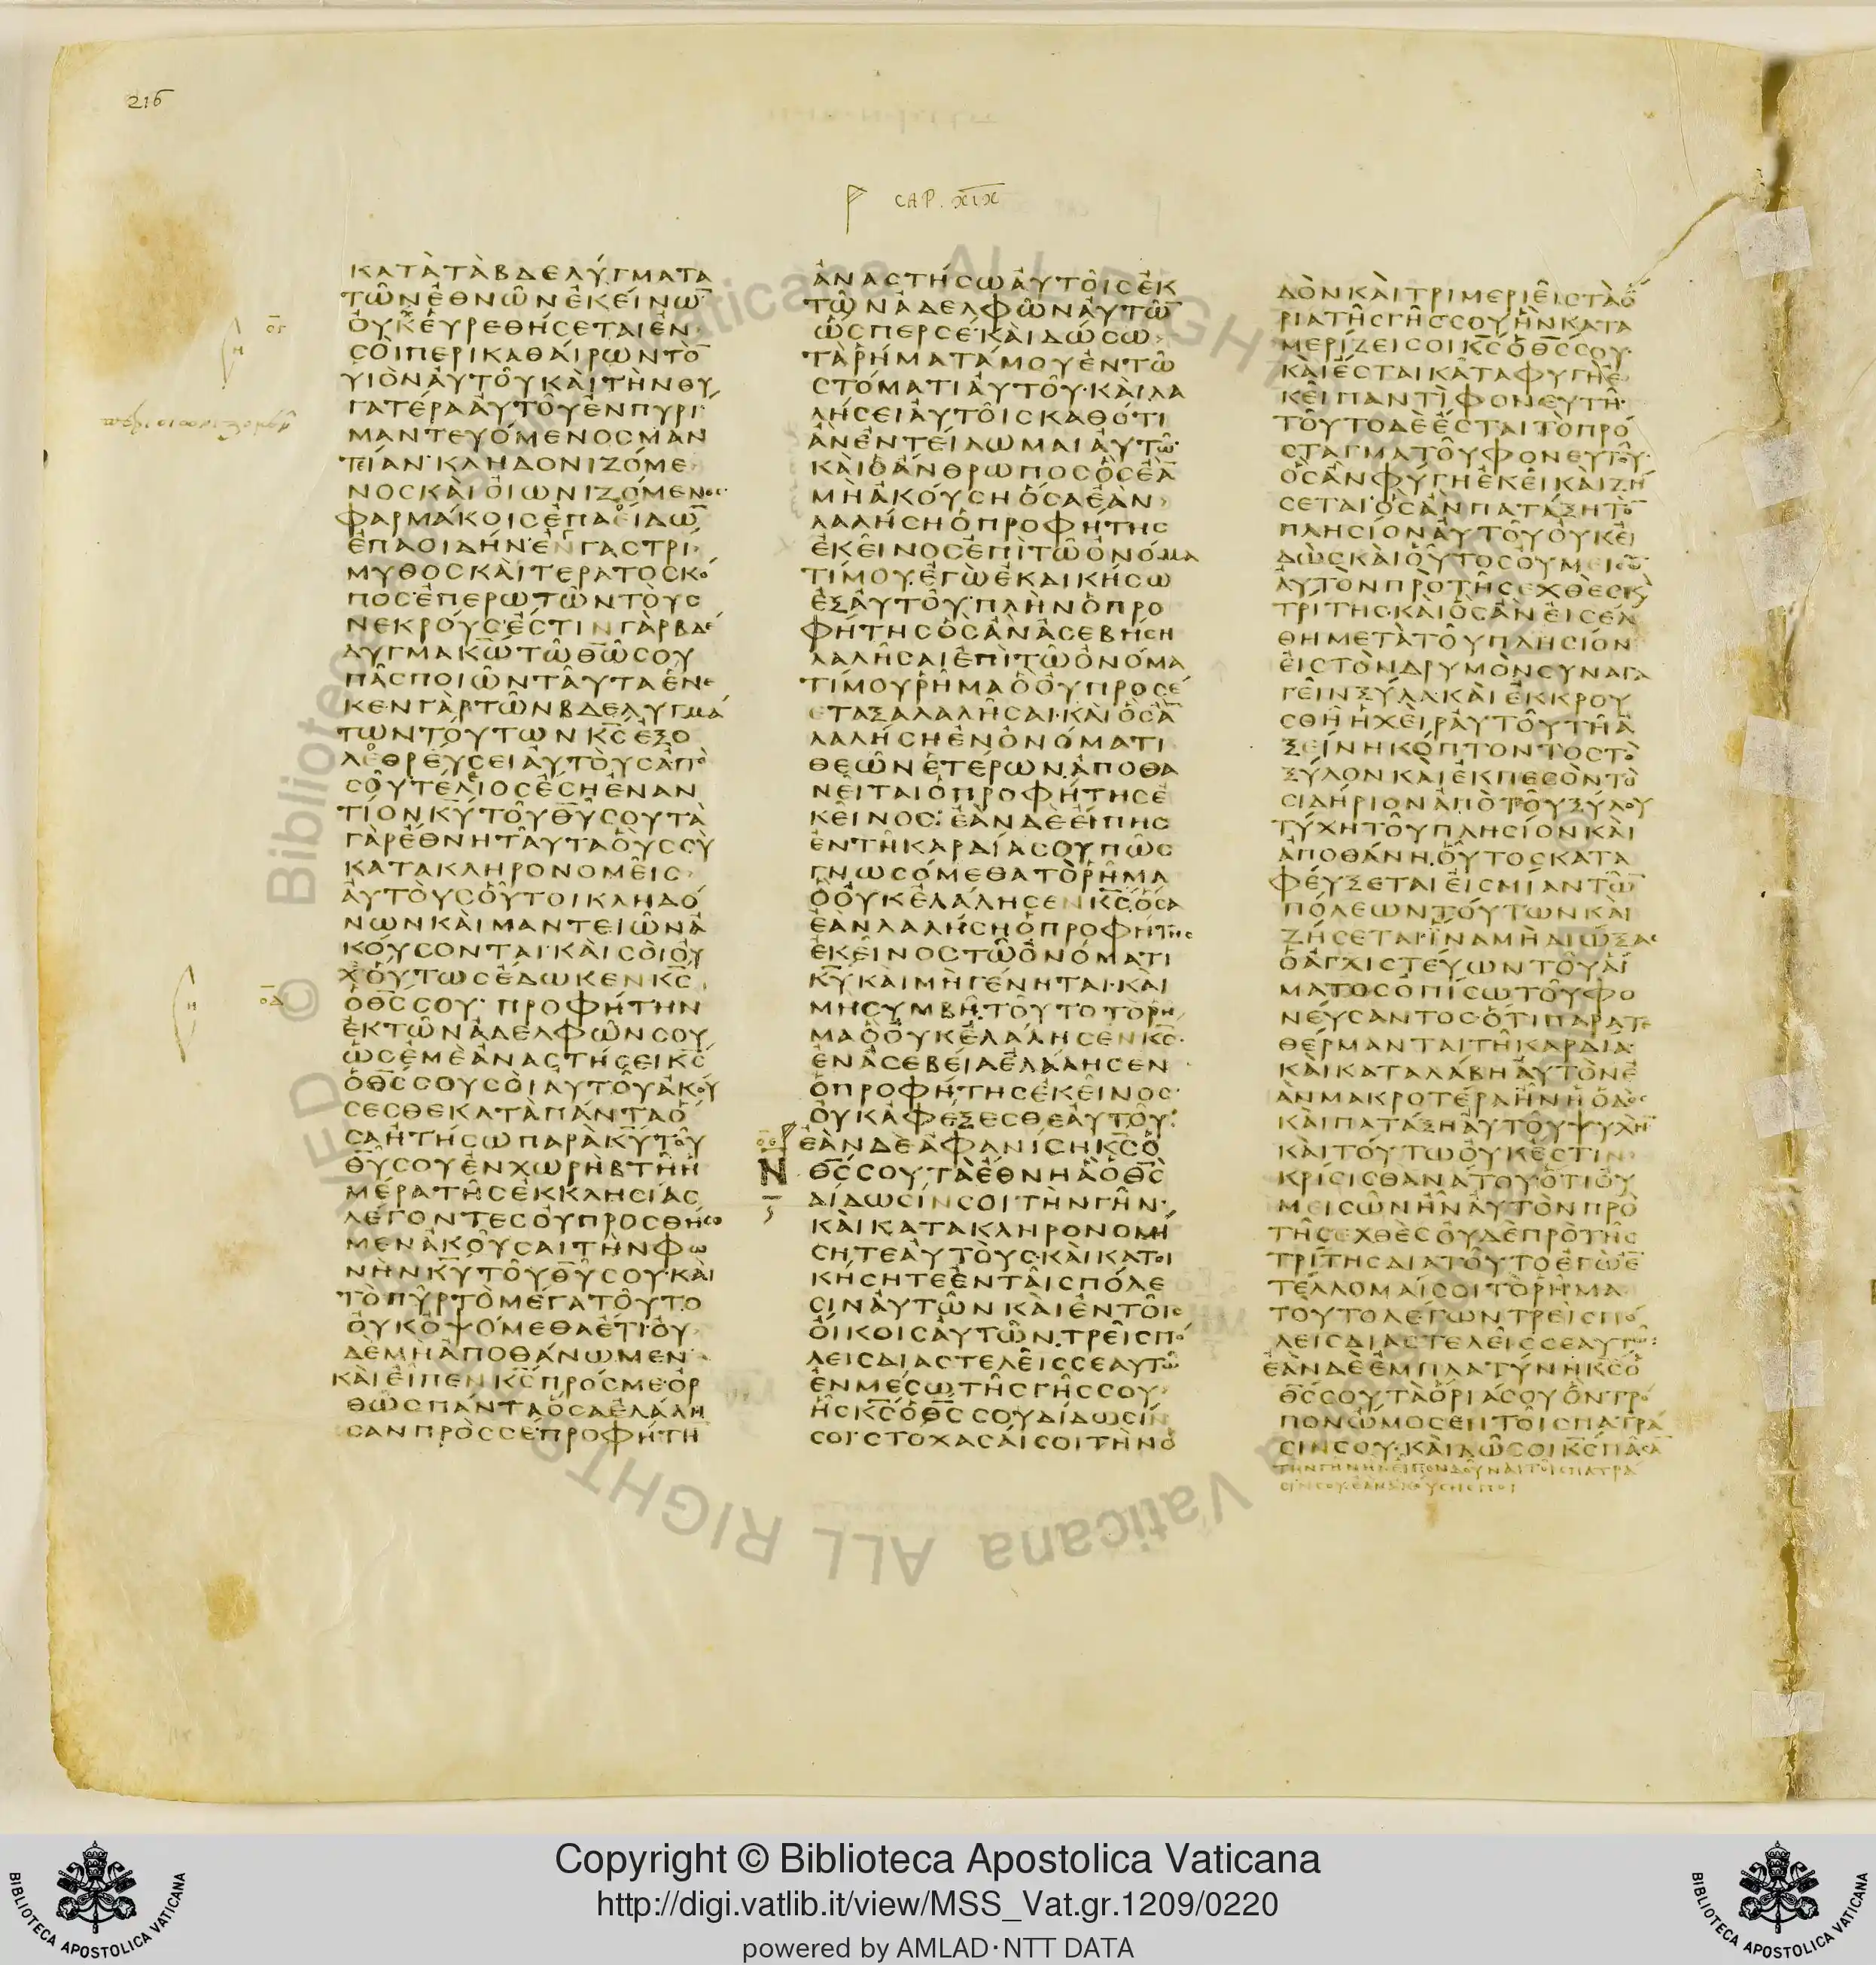 216
CAP. XIX
ΚΑΤᾺΤᾺΒΔΕΛΎΓΜΑΤΑ
ΤΩ͂ΝἘΘΝΩ͂ΝἘΚΕΊΝΩ̅
ΟΥ̓ΧΕὙΡΕΘΉΣΕΤΑΙἘΝ
ΣΟῚΠΕΡΙΚΑΘΑΊΡΩΝΤῸ̅
ΥΙῸΝἈΥΤΟΥ͂ΚΑῚΤῊΝΘΥ
ΓΑΤΈΡΑἈΥΤΟΥ͂ἘΝΠΥΡΊ·
ΜΑΝΤΕΥΌΜΕΝΟΣΜΑΝ
ΤΕΊΑΝ·ΚΛΗΔΟΝΙΖΌΜΕ
ΝΟΣΚΑῚΟἸΩΝΙΖΌΜΕΝΟΣ·
ΦΑΡΜΆΚΟΙΣἘΠΑΕΊΔΩ̅
ἘΠΑΟΙΔΉΝ·ἘΝΓΑΣΤΡΙ
ΜΥΘΟΣΚΑῚΤΕΡΑΤΟΣΚΌ
ΠΟΣ·ἘΠΕΡΩΤΩ͂ΝΤΟῪΣ
ΝΕΚΡΟΎΣ·ἘΣΤΙΝΓᾺΡΒΔΈ
ΛΥΓΜΑΚ̅Ω̅ΤΩ͂Θ̅Ω̅ΣΟΥ
ΠΑ͂ΣΠΟΙΩ͂ΝΤΑΥ͂ΤΑἝΝΕ
ΚΕΝΓᾺΡΤΩ͂ΝΒΔΕΛΥΓΜΆ
ΤΩΝΤΟΎΤΩΝΚ̅Σ̅ἘΞΟ
ΛΕΘΡΕΎΣΕΙΑΥ̓ΤΟῪΣἈΠῸ
ΣΟΥ͂ΤΈΛΙΟΣἜΣΗἘΝΑΝ
ΤΊΟΝΚ̅Υ̅ΤΟΥ͂Θ̅Υ̅ΣΟΥΤᾺ
ΓᾺΡἜΘΝΗΤΑΥ͂ΤΑΟὛΣΣῪ
ΚΑΤΑΚΛΗΡΟΝΟΜΕΙ͂Σ
ΑΥ̓ΤΟῪΣΟΥ͂̔ΤΟΙΚΛΗΔΌ
ΝΩΝΚΑῚΜΑΝΤΕΙΩ͂ΝἈ
ΚΟΎΣΟΝΤΑΙ·ΚΑῚΣΟῚΟΥ̓
ΧΟὝΤΩΣἜΔΩΚΕΝΚ̅Σ̅
ὉΘ̅Σ̅ΣΟΥ·ΠΡΟΦΉΤΗΝ
ἘΚΤΩ͂ΝἈΔΕΛΦΩ͂ΝΣΟΥ
ὩΣἘΜῈἈΝΑΣΤΉΣΕΙΚ̅Σ̅
ὉΘ̅Σ̅ΣΟΥΣΟῚΑΥΤΟΥ͂ἈΚΟΎ
ΣΕΣΘΕΚΑΤᾺΠΆΝΤΑὍ
ΣΑἨΤΉΣΩΠΑΡᾺΚ̅Υ̅ΤΟΥ͂
Θ̅Υ̅ΣΟΥἘΝΧΩΡῊΒΤΗ͂Ἡ
ΜΈΡΑΤΗ͂ΣἘΚΚΛΗΣΊΑΣ
ΛΈΓΟΝΤΕΣΟΥ̓ΠΡΟΣΘΉΣΟ
ΜΕΝἈΚΟΥ͂ΣΑΙΤῊΝΦΩ
ΝῊΝΚ̅Υ̅ΤΟΥ͂Θ̅Υ̅ΣΟΥ·ΚΑῚ
ΤῸΠΥ͂ΡΤῸΜΈΓΑΤΟΥ͂ΤΟ
ΟΥ̓ΚὈΨΌΜΕΘΑἜΤΙ·ΟΥ̓
ΔῈΜῊἈΠΟΘΆΝΩΜΕΝ·
ΚΑῚΕἾΠΕΝΚ̅Σ̅ΠΡΌΣΜΕ·ὈΡ
ΘΩ͂ΣΠΆΝΤΑὍΣΑἘΛΆΛΗ
ΣΑΝΠΡῸΣΣΈ·ΠΡΟΦΉΤΗ̅
ἈΝΑΣΤΉΣΩΑΥ̓ΤΟΙ͂ΣἘΚ
ΤΩ͂ΝἈΔΕΛΦΩ͂ΝΑΥ̓ΤΩ̅
ὩΣΠΕΡΣΈ·ΚΑῚΔΏΣΩ
ΤᾺῬΉΜΑΤΆΜΟΥἘΝΤΩ͂
ΣΤΌΜΑΤΙΑΥ̓ΤΟΥ͂·ΚΑῚΛΑ
ΛΉΣΕΙΑΥ̓ΤΟΙ͂ΣΚΑΘΌΤΙ
ἊΝἘΝΤΕΊΛΩΜΑΙΑΥ̓ΤΩ͂·
ΚΑῚὉἌΝΘΡΩΠΟΣὋΣἘᾺ̅
ΜῊἈΚΟΎΣΗὍΣΑἘᾺΝ
ΛΑΛΉΣΗὉΠΡΟΦΉΤΗΣ
ἘΚΕΙ͂ΝΟΣἘΠῚΤΩ͂ὈΝΌΜΑ
ΤΊΜΟΥ·ἘΓῺἘΚΔΙΚΉΣΩ
ἘΞΑΥ̓ΤΟΥ͂·ΠΛῊΝὉΠΡΟ
ΦΉΤΗΣὋΣἊΝἈΣΕΒΉΣΗ
ΛΑΛΗ͂ΣΑΙἘΠῚΤΩ͂ὈΝΌΜΑ
ΤΊΜΟΥῬΗ͂ΜΑὋΟΥ̓ΠΡΟΣΈ
ΕΤΑΞΑΛΑΛΗ͂ΣΑΙ·ΚΑῚὋΣἊ̅
ΛΑΛΉΣΗἘΝὈΝΌΜΑΤΙ
ΘΕΩ͂ΝἙΤΈΡΩΝ·ἈΠΟΘΑ
ΝΕΙΤΑΙὉΠΡΟΦΉΤΗΣἘ
ΚΕΙ͂ΝΟΣ· ἘᾺΝΔῈΕἼΠΗΣ
ἘΝΤΗ͂ΚΑΡΔΊΑΣΟΥΠΩ͂Σ
ΓΝΩΣΌΜΕΘΑΤῸῬΗ͂ΜΑ
ὋΟΥ̓ΚἘΛΆΛΗΣΕΝΚ̅Σ̅·ὍΣΑ
ἘᾺΝΛΑΛΉΣΗὉΠΡΟΦΉΤΗΣ
ἘΚΕΙ͂ΝΟΣΤΩ͂ὈΝΌΜΑΤΙ
Κ̅Υ̅ΚΑῚΜῊΓΈΝΗΤΑΙ·ΚΑῚ
ΜΗΣΥΜΒΗ͂·ΤΟΥ͂ΤΟΤῸῬΗ͂
ΜΑὋΟΥ̓ΚἘΛΆΛΗΣΕΝΚ̅Σ̅·
ἘΝἈΣΕΒΕΊΑἘΛΆΛΗΣΕΝ
ὉΠΡΟΦΉΤΗΣἘΚΕΙ͂ΝΟΣ·
ΟΥ̓ΚἈΦΈΞΕΣΘΕΑΥ̓ΤΟΥ͂·
ἘᾺΝΔῈἈΦΑΝΊΣΗΚ̅Σ̅Ὁ
Θ̅Σ̅ΣΟΥΤᾺἜΘΝΗἋὉΘ̅Σ̅
ΔΊΔΩΣΊΝΣΟΙΤῊΝΓΗ͂Ν·
ΚΑῚΚΑΤΑΚΛΗΡΟΝΟΜΉ
ΣΗΤΕΑΥ̓ΤΟῪΣ·ΚΑῚΚΑΤΟΙ
ΚΉΣΗΤΕἘΝΤΑΙ͂ΣΠΌΛΕ
ΣΙΝΑΥ̓ΤΩ͂ΝΚΑῚἘΝΤΟΙ͂Σ
ΟἼΚΟΙΣΑΥ̓ΤΩ͂Ν·ΤΡΕΙ͂ΣΠΌ
ΛΕΙΣΔΙΑΣΤΕΛΕΙ͂ΣΣΕΑΥΤΩ͂
ἘΝΜΈΣΩΤΗ͂ΣΓΗ͂ΣΣΟΥ
ἯΣΚ̅Σ̅ὉΘ̅Σ̅ΣΟΥΔΊΔΩΣΊΝ
ΣΟΙ·ΣΤΟΧΑΣΑΊΣΟΙΤῊΝὉ
ΔῸΝΚΑῚΤΡΙΜΕΡΙΕΙ͂ΣΤᾺὍ
ΡΙΑΤΗ͂ΣΓΗ͂ΣΣΟΥἫΝΚΑΤΑ
ΜΕΡΊΖΕΙΣΟΙΚ̅Σ̅ὉΘ̅Σ̅ΣΟΥ·
ΚΑῚἜΣΤΑΙΚΑΤΑΦΥΓῊἘ
ΚΕΙ͂ΠΑΝΤῚΦΟΝΕΥΤΗ͂·
ΤΟΥ͂ΤΟΔῈἜΣΤΑΙΤῸΠΡΌ
ΣΤΑΓΜΑΤΟΥ͂ΦΟΝΕΥΤΟΥ͂·
ὋΣἊΝΦΎΓΗἘΚΕΙ͂ΚΑῚΖΉ
ΣΕΤΑΙ·ὋΣἊΝΠΑΤΆΞΗΤῸ̅
ΠΛΗΣΊΟΝΑΥ̓ΤΟΥ͂ΟΥ̓ΚΕΙ
ΔῺΣΚΑῚΟΥ͂̔ΤΟΣΟΥ̓ΜΕΙΣΩ͂
ΑΥ̓ΤῸΝΠΡῸΤΗ͂ΣΕΧΘῈΣΚᾺ
ΤΡΙΤΗΣ·ΚΑῚὋΣἊΝΕἸΣΈΛ
ΘΗΜΕΤᾺΤΟΥ͂ΠΛΗΣΊΟΝ
ΕἸΣΤῸΝΔΡΥΜῸΝΣΥΝΑΓΑ
ΓΕΙ͂ΝΞΎΛΑ·ΚΑῚἘΚΚΡΟΥ
ΣΘΗ͂ἩΧΕῚΡΑΥ̓ΤΟΥ͂ΤΗ͂Ἀ
ΞΕΊΝΗΚΌΠΤΟΝΤΟΣΤῸ
ΞΎΛΟΝΚΑῚἘΚΠΕΣῸΝΤῸ
ΣΙΔΉΡΙΟΝἈΠῸΤΟΥ͂ΞΎΛΟΥ
ΤΎΧΗΤΟΥ͂ΠΛΗΣΊΟΝΚΑῚ
ἈΠΟΘΆΝΗ·ΟΥ͂̔ΤΟΣΚΑΤΑ
ΦΕΎΞΕΤΑΙΕἸΣΜΊΑΝΤΩ̅
ΠΌΛΕΩΝΤΟΎΤΩΝΚΑῚ
ΖΉΣΕΤΑΙ·ἽΝΑΜῊΔΙΏΞΑΣ
ὉἈΓΧΙΣΤΕΎΩΝΤΟΥ͂ΑἽ
ΜΑΤΟΣὈΠΊΣΩΤΟΥ͂ΦΟ
ΝΕΎΣΑΝΤΟΣ·ὍΤΙΠΑΡΑΤΕ
ΘΈΡΜΑΝΤΑΙΤΗ͂ΚΑΡΔΊΑ·
ΚΑῚΚΑΤΑΛΆΒΗΑΥ̓ΤῸΝἘ
ᾺΝΜΑΚΡΟΤΈΡΑἮΝἩὉΔῸΣ
ΚΑῚΠΑΤΆΞΗΑΥ̓ΤΟΥ͂ΨΥΧῊ̅
ΚΑῚΤΟΎΤΩΟΥ̓ΚἜΣΤΙΝ
ΚΡΊΣΙΣΘΑΝΆΤΟΥ·ὍΤΙΟΥ̓
ΜΕΙΣΩ͂ΝἮΝΑΥ̓ΤῸΝΠΡῸ
ΤΗ͂ΣΕΧΘῈΣΟΥ̓ΔῈΠΡῸΤΗ͂Σ
ΤΡΊΤΗΣΔΙΑΤΟΥ͂ΤΟἘΓῺἘ̅
ΤΈΛΛΟΜΑΊΣΟΙΤῸῬΗ͂ΜΑ
ΤΟΥ͂ΤΟΛΈΓΩΝΤΡΕΙ͂ΣΠΌ
ΛΕΙΣΔΙΑΣΤΕΛΕΙ͂ΣΣΕΑΥΤΩ͂·
ἘᾺΝΔῈἘΜΠΛΑΤΎΝΗΚ̅Σ̅Ὁ
Θ̅Σ̅ΣΟΥΤᾺὍΡΙΆΣΟΥὋΝΤΡΌ
ΠΟΝὬΜΟΣΕΝΤΟΙ͂ΣΠΑΤΡΆ
ΣΙΝΣΟΥ·ΚΑῚΔΩ͂ΣΟΙΚ̅Σ̅ΠΑ͂ΣΑ̅
ΤῊΝΓΗ͂ΝἫΝΕἾΠΟΝΔΟΥ͂ΝΑΙΤΟΙ͂ΣΠΑΤΡΑ
ΣΊΝΣΟΥ·ἘᾺΝἈΚΟΎΣΗΣΠΟΙ
Copyright © Biblioteca Apostolica Vaticana
http://digi.vatlib.it/view/MSS_Vat.gr.1209/0220
powered by AMLAD·NTT DATA
BIBLIOTECA APOSTOLICA VATICANA
BIBLIOTECA APOSTOLICA VATICANA